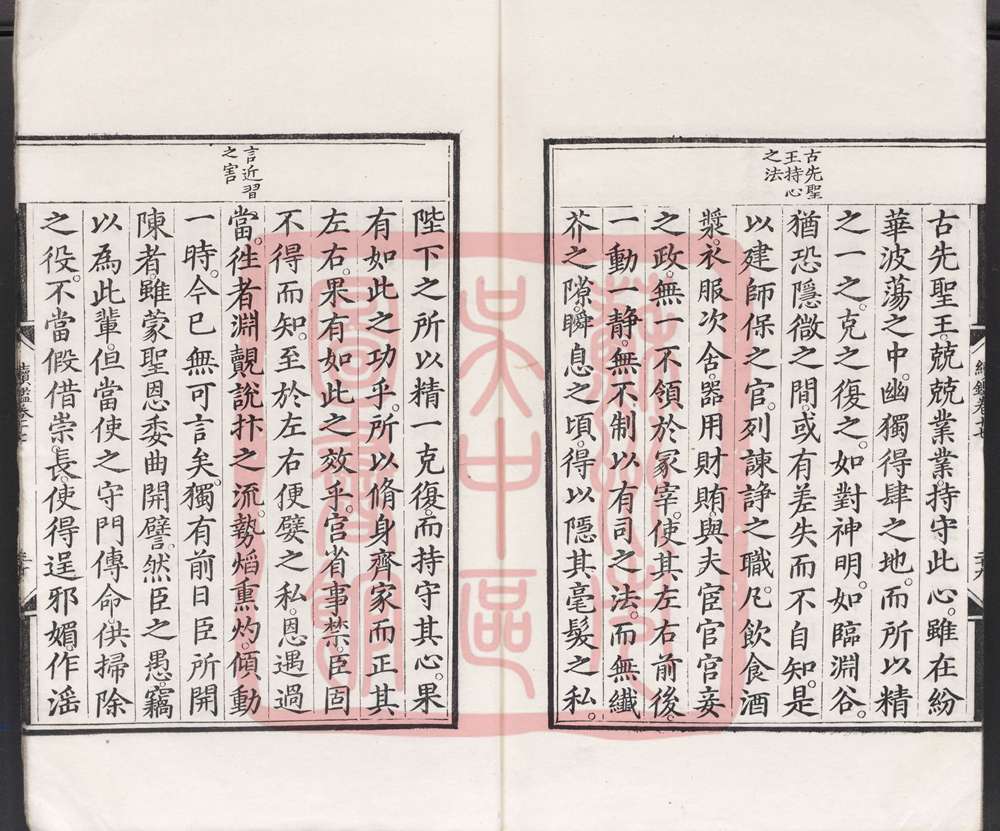 古先聖
王持心
之法
古先聖王。兢兢業業。持守此心。雖在紛
華波蕩之中。幽獨得肆之地。而所以精
之一之。克之復之。如對神明。如臨淵谷。
猶恐隱微之間。或有差失而不自知。是
以建師保之官。列諫諍之職。凡飲食酒
漿。衣服次舍。器用財賄。與夫宦官宮妾
之政。無一不領於冢宰。使其左右前後。
一動一靜。無不制以有司之法。而無纖
芥之隙。瞬息之頃。得以隱其毫髮之私。
言近習
之害
陛下之所以精一克復。而持守其心。果
有如此之功乎。所以脩身齊家而正其
左右。果有如此之效乎。宮省事禁。臣固
不得而知。至於左右便嬖之私。恩遇過
當。徃者淵覿說抃之流。勢焰熏灼。傾動
一時。今已無可言矣。獨有前日臣所開
陳者。雖蒙聖恩委曲開譬。然臣之愚。竊
以為此輩。但當使之守門傳命。供掃除
之役。不當假借崇長。使得逞邪媚。作淫
續鑑卷二十七
吳中區
圖書館